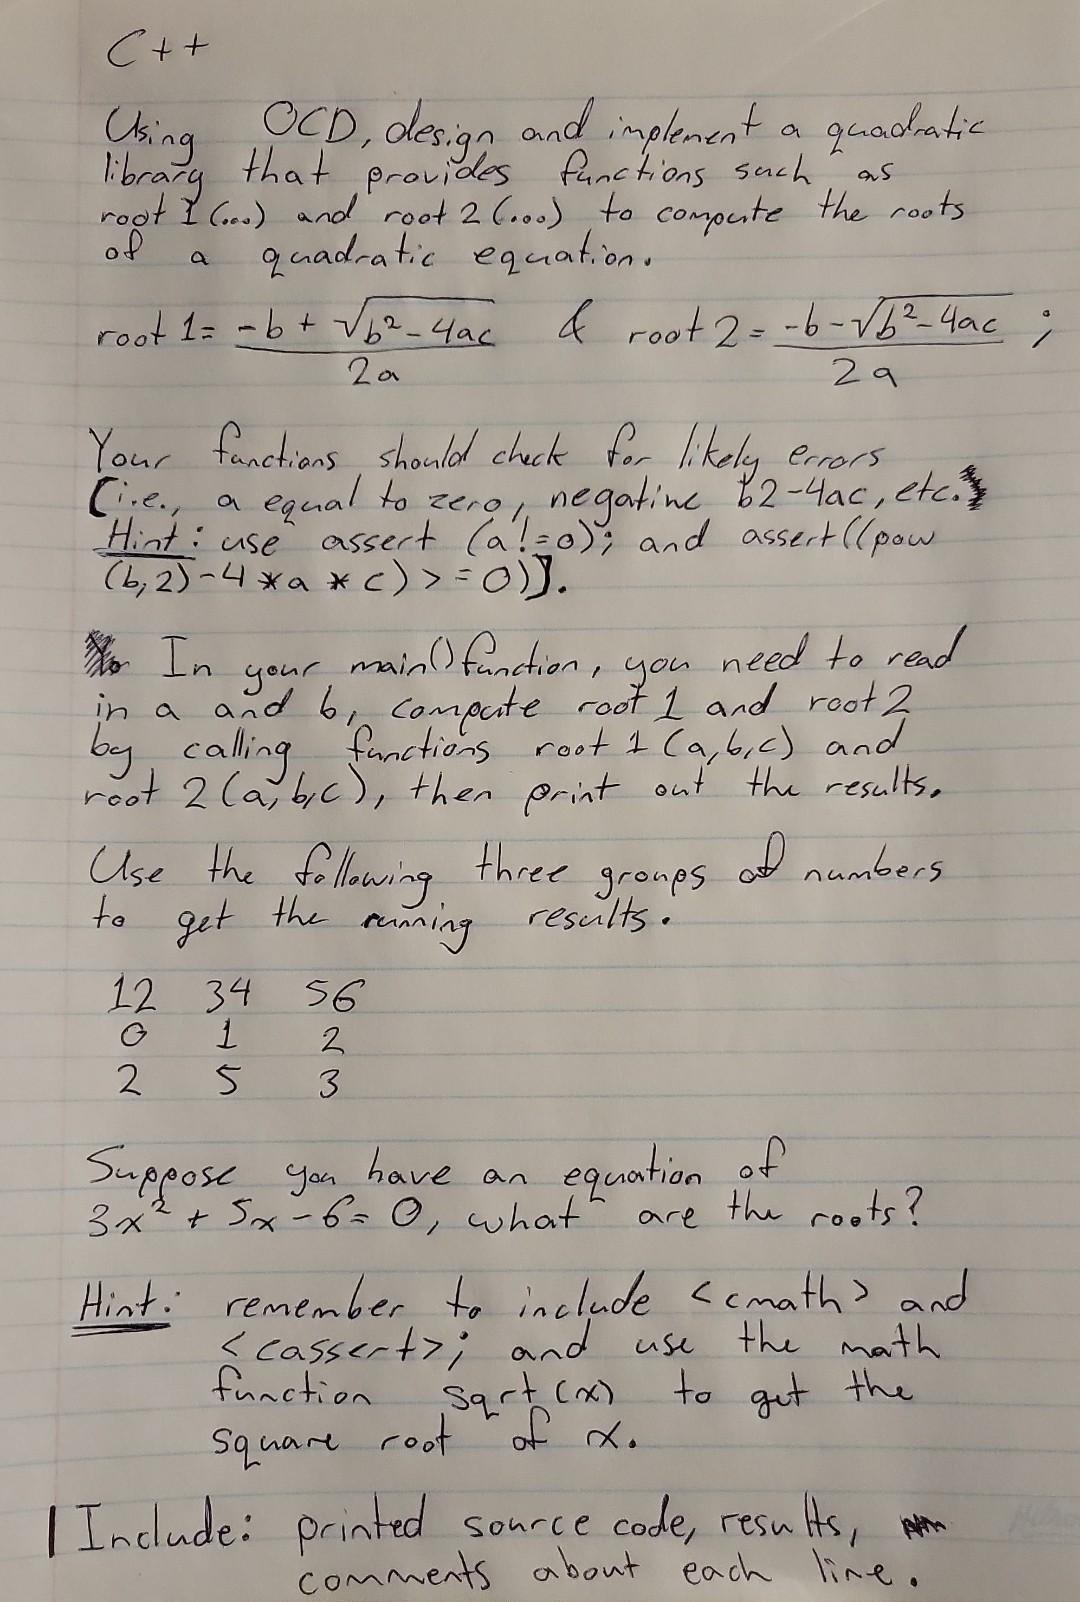 C++
Using OCD, design and implement a quadratic
library that provides functions such as
root 1 (...) and root 2 (...) to compute the roots
of a quadratic equation.
root 1 = -b + √b²-4ac / 2a & root 2 = -b-√b²-4ac / 2a ;
Your functions should check for likely errors
[i.e., a equal to zero, negative b2-4ac, etc.
Hint: use assert (a!=0); and assert((pow
(b,2)-4*a*c)>=0)].
In your main() function, you need to read
in a and b, compute root 1 and root 2
by calling functions root 1 (a,b,c) and
root 2 (a,b,c), then print out the results.
Use the following three groups of numbers
to get the running results.
12 34 56
0 1 2
2 5 3
Suppose you have an equation of
3x² + 5x - 6 = 0, what are the roots?
Hint: remember to include <cmath> and
<cassert>; and use the math
function sqrt(x) to get the
square root of x.
Include: printed source code, results,
comments about each line.